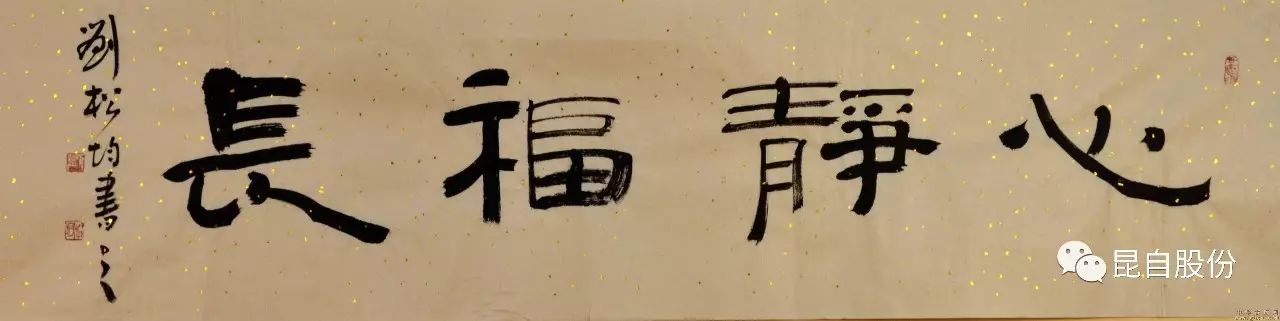 心靜福長
劉松均書之
昆自股份